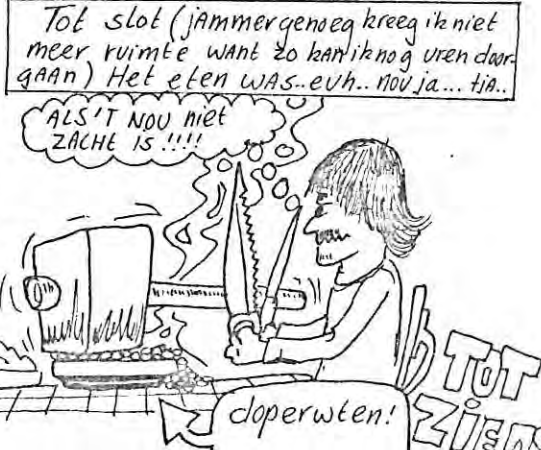 Tot slot (jAmmergenoeg kreeg ik niet
meer ruimte wAnt zo kAn ik nog uren door-
gAAn) Het eten wAs..euh.. nou ja... tja..
ALS'T NOU niet
ZACHt IS !!!!
doperwten!
TOT
ZIENS